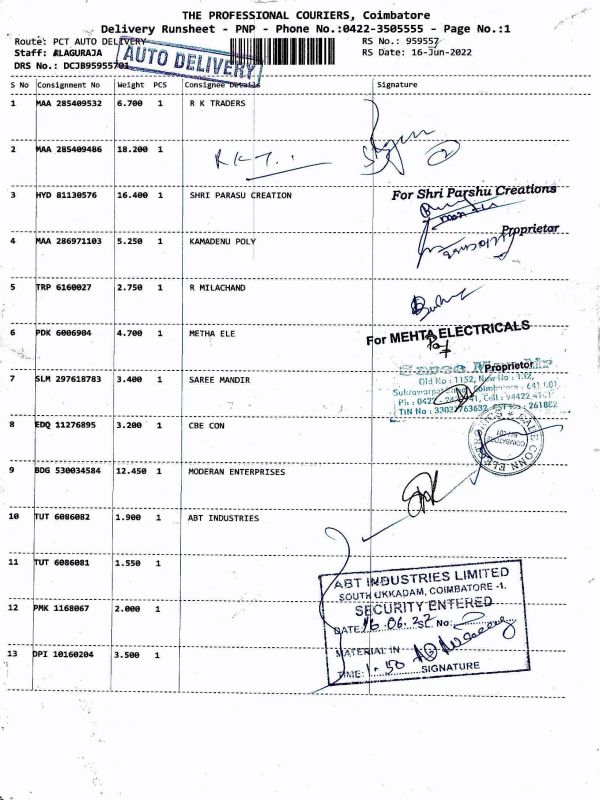 THE PROFESSIONAL COURIERS, Coimbatore
Delivery Runsheet - PNP - Phone No.:0422-3505555 - Page No.:1
Route: PCT AUTO DELIVERY
RS No.: 959557
Staff: ALAGURAJA
RS Date: 16-Jun-2022
DRS No.: DCJB95955701
AUTO DELIVERY
S No Consignment No Weight PCS Consignee Details Signature
1 MAA 285409532 6.700 1 R K TRADERS
2 MAA 285409486 18.200 1
R K T..
3 HYD 81130576 16.400 1 SHRI PARASU CREATION
For Shri Parshu Creations
Proprietor
4 MAA 286971103 5.250 1 KAMADENU POLY
5 TRP 6160027 2.750 1 R MILACHAND
6 PDK 6006904 4.700 1 METHA ELE
For MEHTA ELECTRICALS
Proprietor
7 SLM 297618783 3.400 1 SAREE MANDIR
Saree Mandir
Old No : 1152, New No : 1.02,
Coimbatore - 641 001.
TIN No : 33032763632
8 EDQ 11276895 3.200 1 CBE CON
COIMBATORE
9 BDG 530034584 12.450 1 MODERAN ENTERPRISES
10 TUT 6086082 1.900 1 ABT INDUSTRIES
11 TUT 6086081 1.550 1
12 PMK 1168067 2.000 1
13 DPI 10160204 3.500 1
ABT INDUSTRIES LIMITED
SOUTH UKKADAM, COIMBATORE -1.
SECURITY ENTERED
DATE: 16.06.22 SL. No:
MATERIAL IN
TIME: 1.50 SIGNATURE